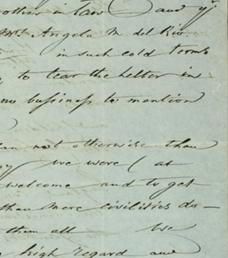 other in law and if
Mrs. Angela M. del Rio
in such cold terms
to tear the letter in
bussiness to mention
not otherwise than
we were ( at
welcome and to get
than mere civilities do-
them all We
high regard and